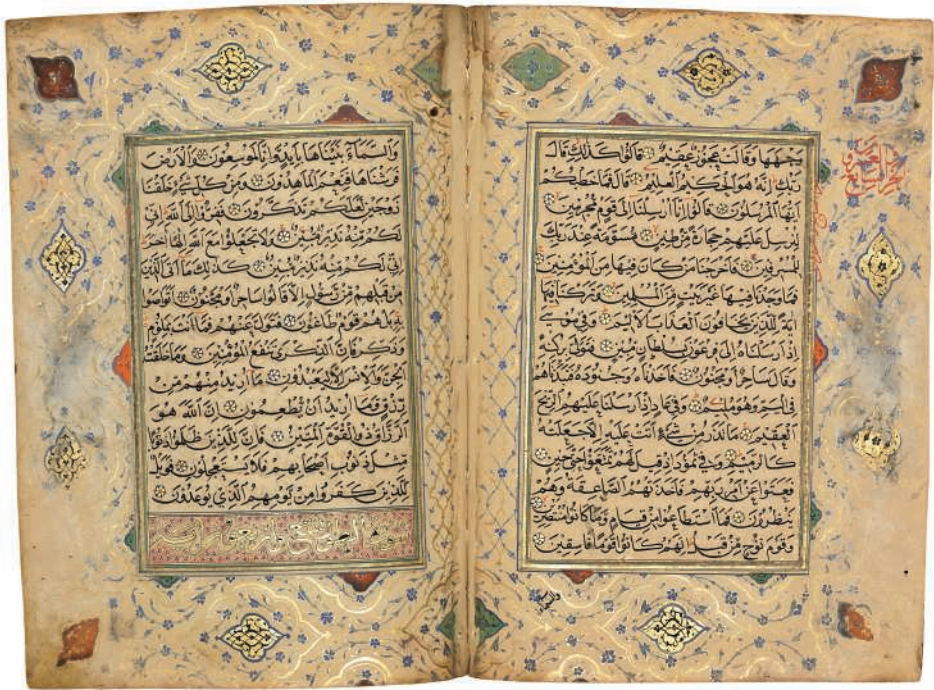 وَجْهَهَا وَقَالَتْ عَجُوزٌ عَقِيمٌ قَالُوا كَذَلِكِ قَالَ
رَبُّكِ إِنَّهُ هُوَ الْحَكِيمُ الْعَلِيمُ قَالَ فَمَا خَطْبُكُمْ
أَيُّهَا الْمُرْسَلُونَ قَالُوا إِنَّا أُرْسِلْنَا إِلَى قَوْمٍ مُجْرِمِينَ
لِنُرْسِلَ عَلَيْهِمْ حِجَارَةً مِنْ طِينٍ مُسَوَّمَةً عِنْدَ رَبِّكَ
لِلْمُسْرِفِينَ فَأَخْرَجْنَا مَنْ كَانَ فِيهَا مِنَ الْمُؤْمِنِينَ
فَمَا وَجَدْنَا فِيهَا غَيْرَ بَيْتٍ مِنَ الْمُسْلِمِينَ وَتَرَكْنَا فِيهَا
آيَةً لِلَّذِينَ يَخَافُونَ الْعَذَابَ الْأَلِيمَ وَفِي مُوسَى
إِذْ أَرْسَلْنَاهُ إِلَى فِرْعَوْنَ بِسُلْطَانٍ مُبِينٍ فَتَوَلَّى بِرُكْنِهِ
وَقَالَ سَاحِرٌ أَوْ مَجْنُونٌ فَأَخَذْنَاهُ وَجُنُودَهُ فَنَبَذْنَاهُمْ
فِي الْيَمِّ وَهُوَ مُلِيمٌ وَفِي عَادٍ إِذْ أَرْسَلْنَا عَلَيْهِمُ الرِّيحَ
الْعَقِيمَ مَا تَذَرُ مِنْ شَيْءٍ أَتَتْ عَلَيْهِ إِلَّا جَعَلَتْهُ
كَالرَّمِيمِ وَفِي ثَمُودَ إِذْ قِيلَ لَهُمْ تَمَتَّعُوا حَتَّى حِينٍ
فَعَتَوْا عَنْ أَمْرِ رَبِّهِمْ فَأَخَذَتْهُمُ الصَّاعِقَةُ وَهُمْ
يَنْظُرُونَ فَمَا اسْتَطَاعُوا مِنْ قِيَامٍ وَمَا كَانُوا مُنْتَصِرِينَ
وَقَوْمَ نُوحٍ مِنْ قَبْلُ إِنَّهُمْ كَانُوا قَوْمًا فَاسِقِينَ
والسماء
وَالسَّمَاءَ بَنَيْنَاهَا بِأَيْدٍ وَإِنَّا لَمُوسِعُونَ وَالْأَرْضَ
فَرَشْنَاهَا فَنِعْمَ الْمَاهِدُونَ وَمِنْ كُلِّ شَيْءٍ خَلَقْنَا
زَوْجَيْنِ لَعَلَّكُمْ تَذَكَّرُونَ فَفِرُّوا إِلَى اللَّهِ إِنِّي
لَكُمْ مِنْهُ نَذِيرٌ مُبِينٌ وَلَا تَجْعَلُوا مَعَ اللَّهِ إِلَهًا آخَرَ
إِنِّي لَكُمْ مِنْهُ نَذِيرٌ مُبِينٌ كَذَلِكَ مَا أَتَى الَّذِينَ
مِنْ قَبْلِهِمْ مِنْ رَسُولٍ إِلَّا قَالُوا سَاحِرٌ أَوْ مَجْنُونٌ أَتَوَاصَوْا
بِهِ بَلْ هُمْ قَوْمٌ طَاغُونَ فَتَوَلَّ عَنْهُمْ فَمَا أَنْتَ بِمَلُومٍ
وَذَكِّرْ فَإِنَّ الذِّكْرَى تَنْفَعُ الْمُؤْمِنِينَ وَمَا خَلَقْتُ
الْجِنَّ وَالْإِنْسَ إِلَّا لِيَعْبُدُونِ مَا أُرِيدُ مِنْهُمْ مِنْ
رِزْقٍ وَمَا أُرِيدُ أَنْ يُطْعِمُونِ إِنَّ اللَّهَ هُوَ
الرَّزَّاقُ ذُو الْقُوَّةِ الْمَتِينُ فَإِنَّ لِلَّذِينَ ظَلَمُوا ذَنُوبًا
مِثْلَ ذَنُوبِ أَصْحَابِهِمْ فَلَا يَسْتَعْجِلُونِ فَوَيْلٌ
لِلَّذِينَ كَفَرُوا مِنْ يَوْمِهِمُ الَّذِي يُوعَدُونَ
سورة الطور